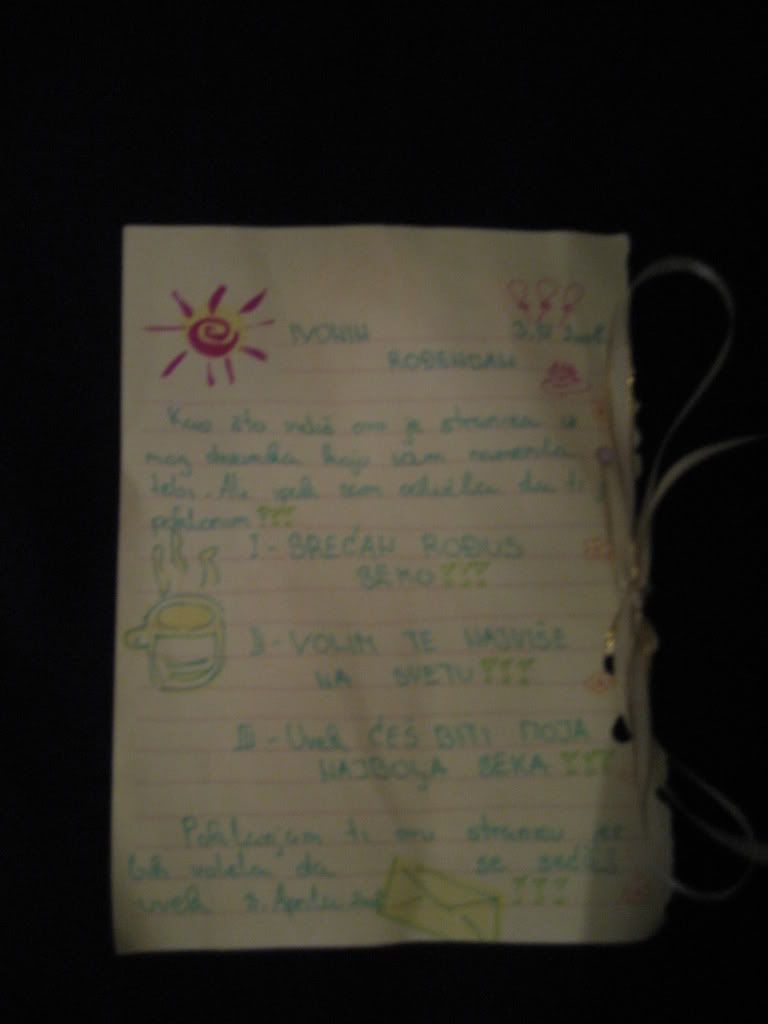 IVONIN
ROĐENDAN
Kao što vidiš ovo je stranica iz
mog dnevnika koju sam namenila
tebi. Ali ipak sam odlučila da ti
poklonim!!!
I - SREĆAN ROĐUS
SEKO!!!
II - VOLIM TE NAJVIŠE
NA SVETU!!!
III - Uvek ĆEŠ BITI MOJA
NAJBOLJA SEKA!!!
Poklanjam ti ovu stranicu jer
bih volela da se sećaš
uvek Aprila
!!!